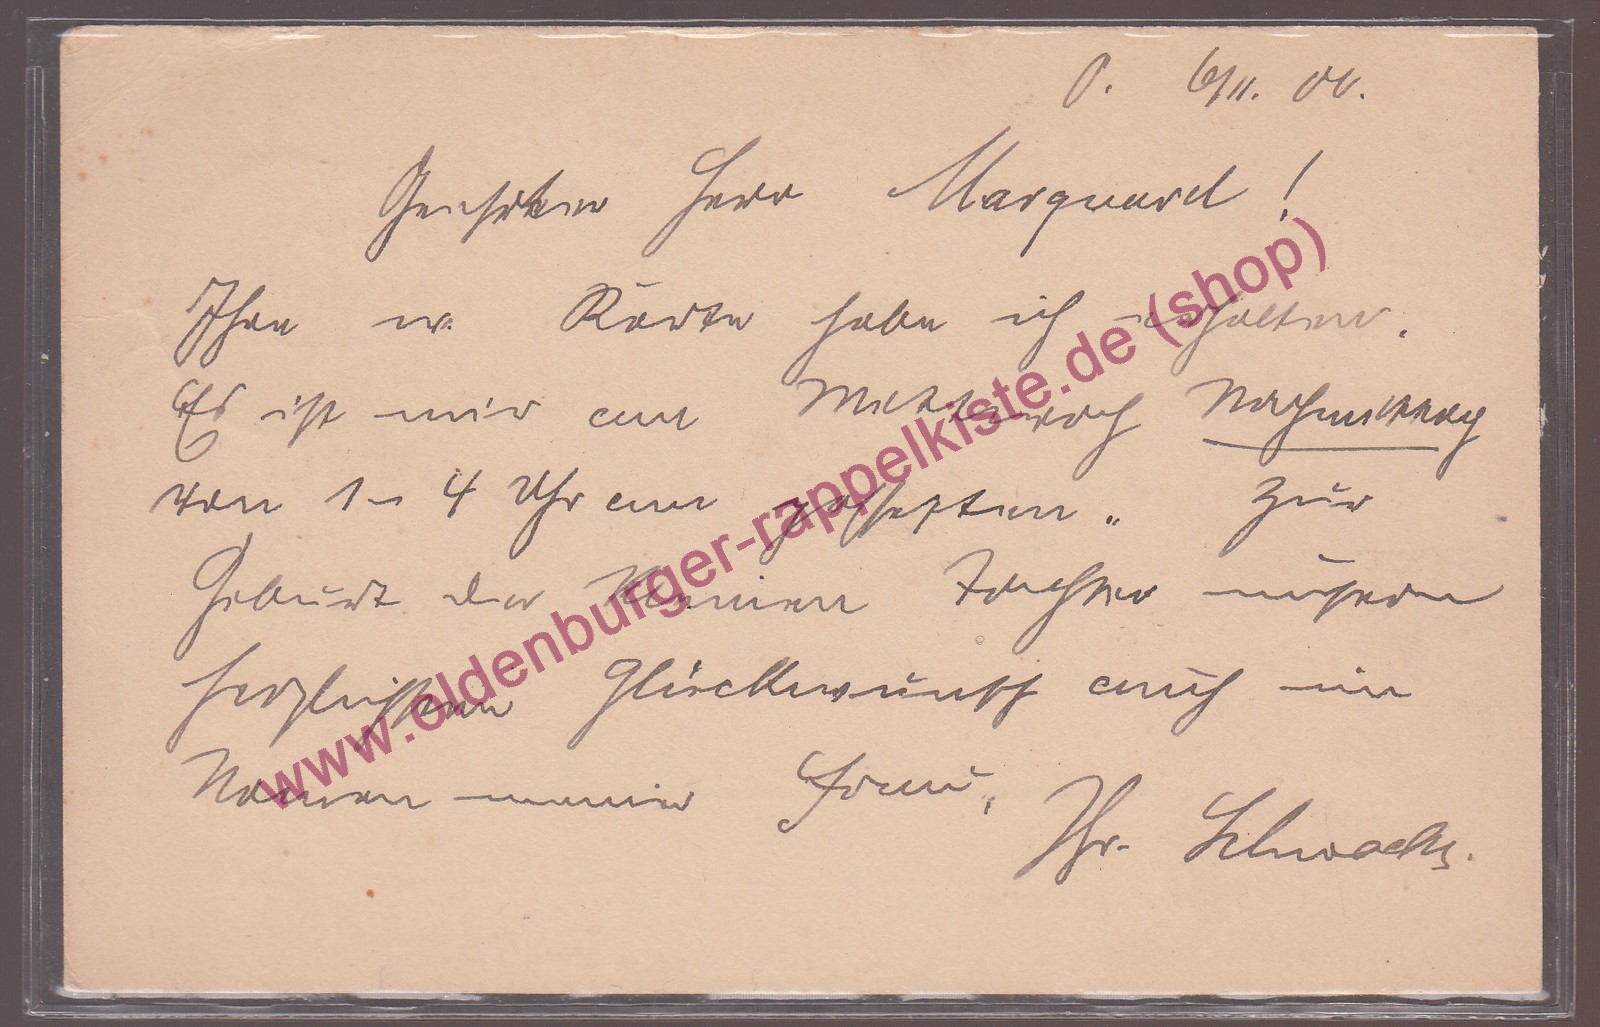 O. 6/11. 00.
Geehrter Herr Marquard!
Ihre w. Karte habe ich erhalten.
Es ist mir am Mittwoch Nachmittag
von 1–4 Uhr am  Zur
Geburt der kleinen Tochter unsern
herzlichsten Glückwunsch auch im
Namen meiner Frau.
Ihr
www.oldenburger-rappelkiste.de (shop)